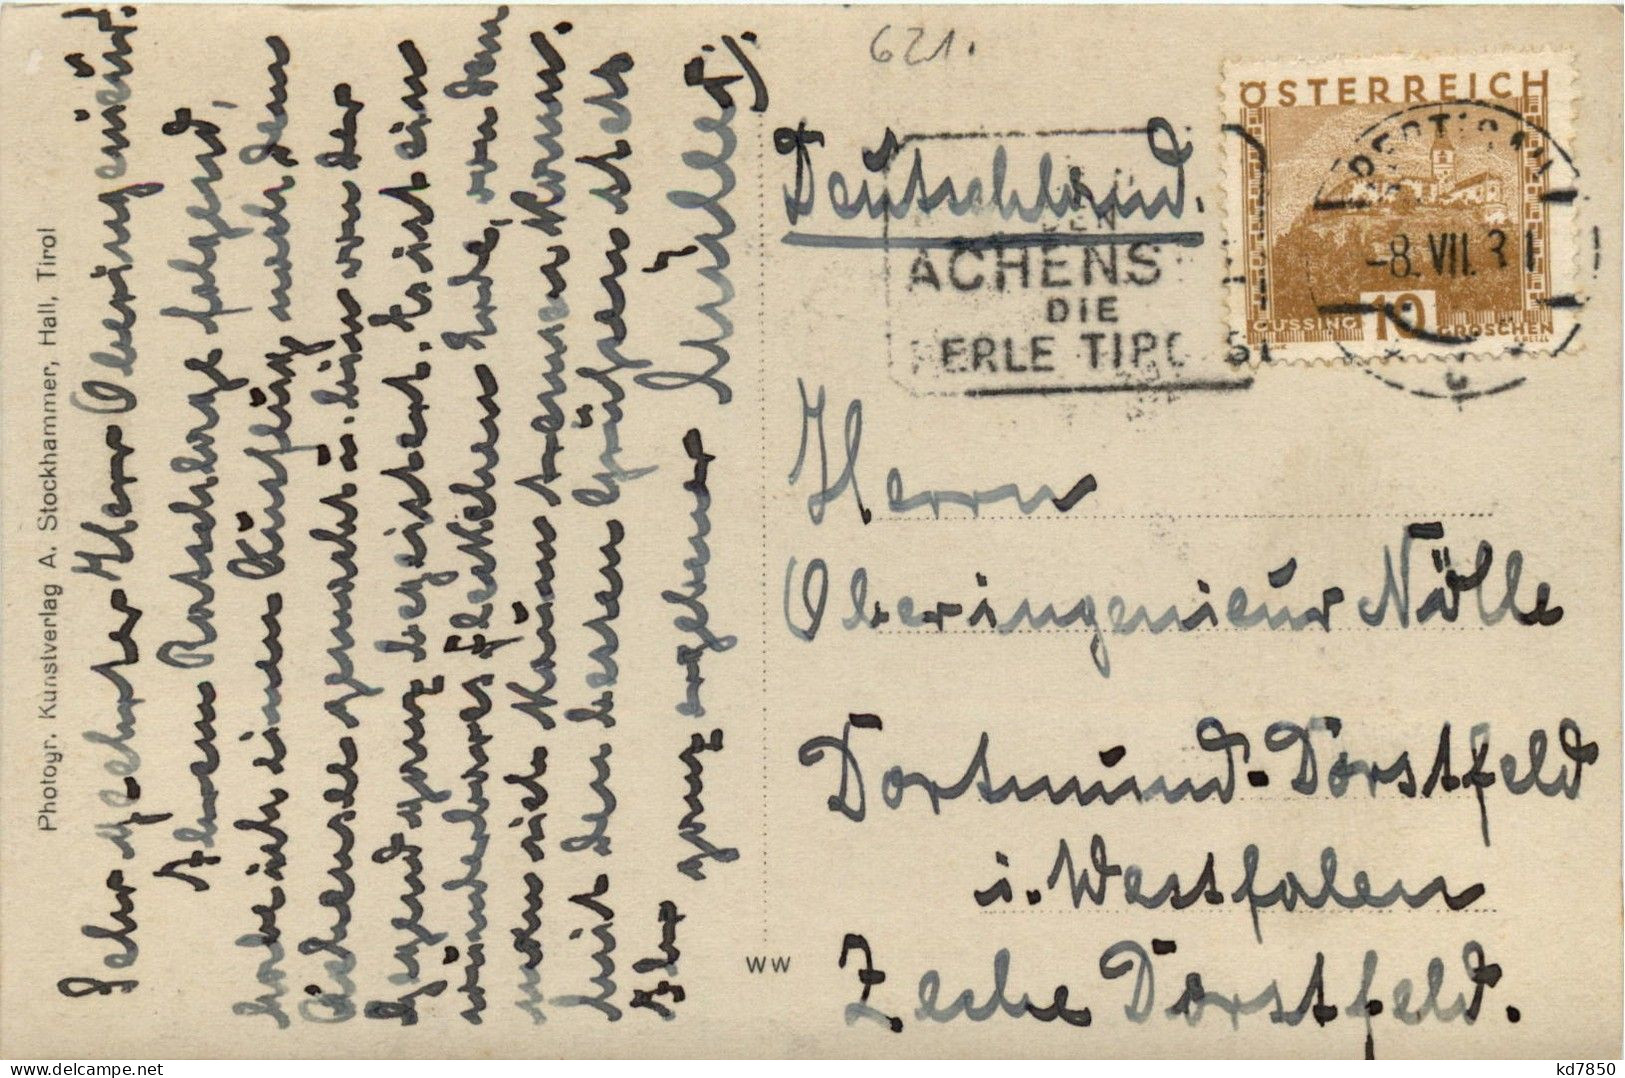 Photogr. Kunstverlag A. Stockhammer, Hall, Tirol
Sehr geehrter Herr Oberingenieur.
Ihrem Ratschlage folgend,
habe ich einen Ausflug nach dem
Achensee gemacht u. bin von der
Gegend ganz begeistert. Es ist ein
wunderbares Fleckchen Erde, von dem
man sich kaum trennen kann.
Mit den besten Grüßen stets
Ihr ganz ergebener
621.
Deutschland.
ÖSTERREICH
GÜSSING 10 GROSCHEN
-8.VII.31
ACHENS
DIE
PERLE TIROLS!
Herrn
Oberingenieur Nölle
Dortmund-Dorstfeld
i. Westfalen
Zeche Dorstfeld.
WW
kd7850